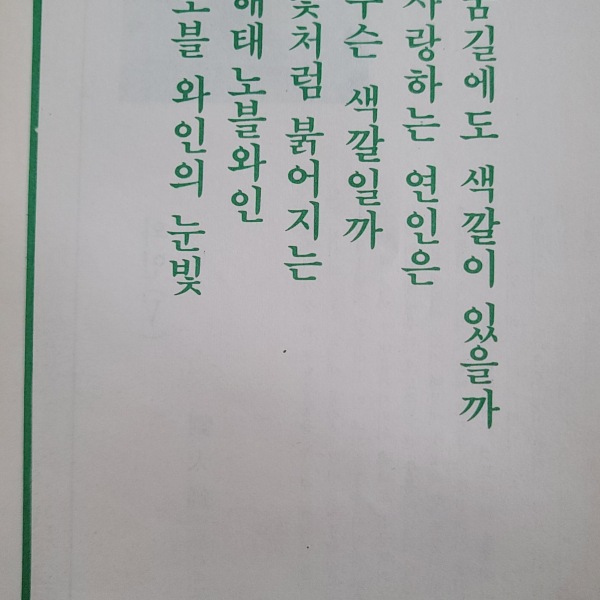 꿈길에도 색깔이 있을까
사랑하는 연인은
무슨 색깔일까
꽃처럼 붉어지는
해태노블와인
노블 와인의 눈빛